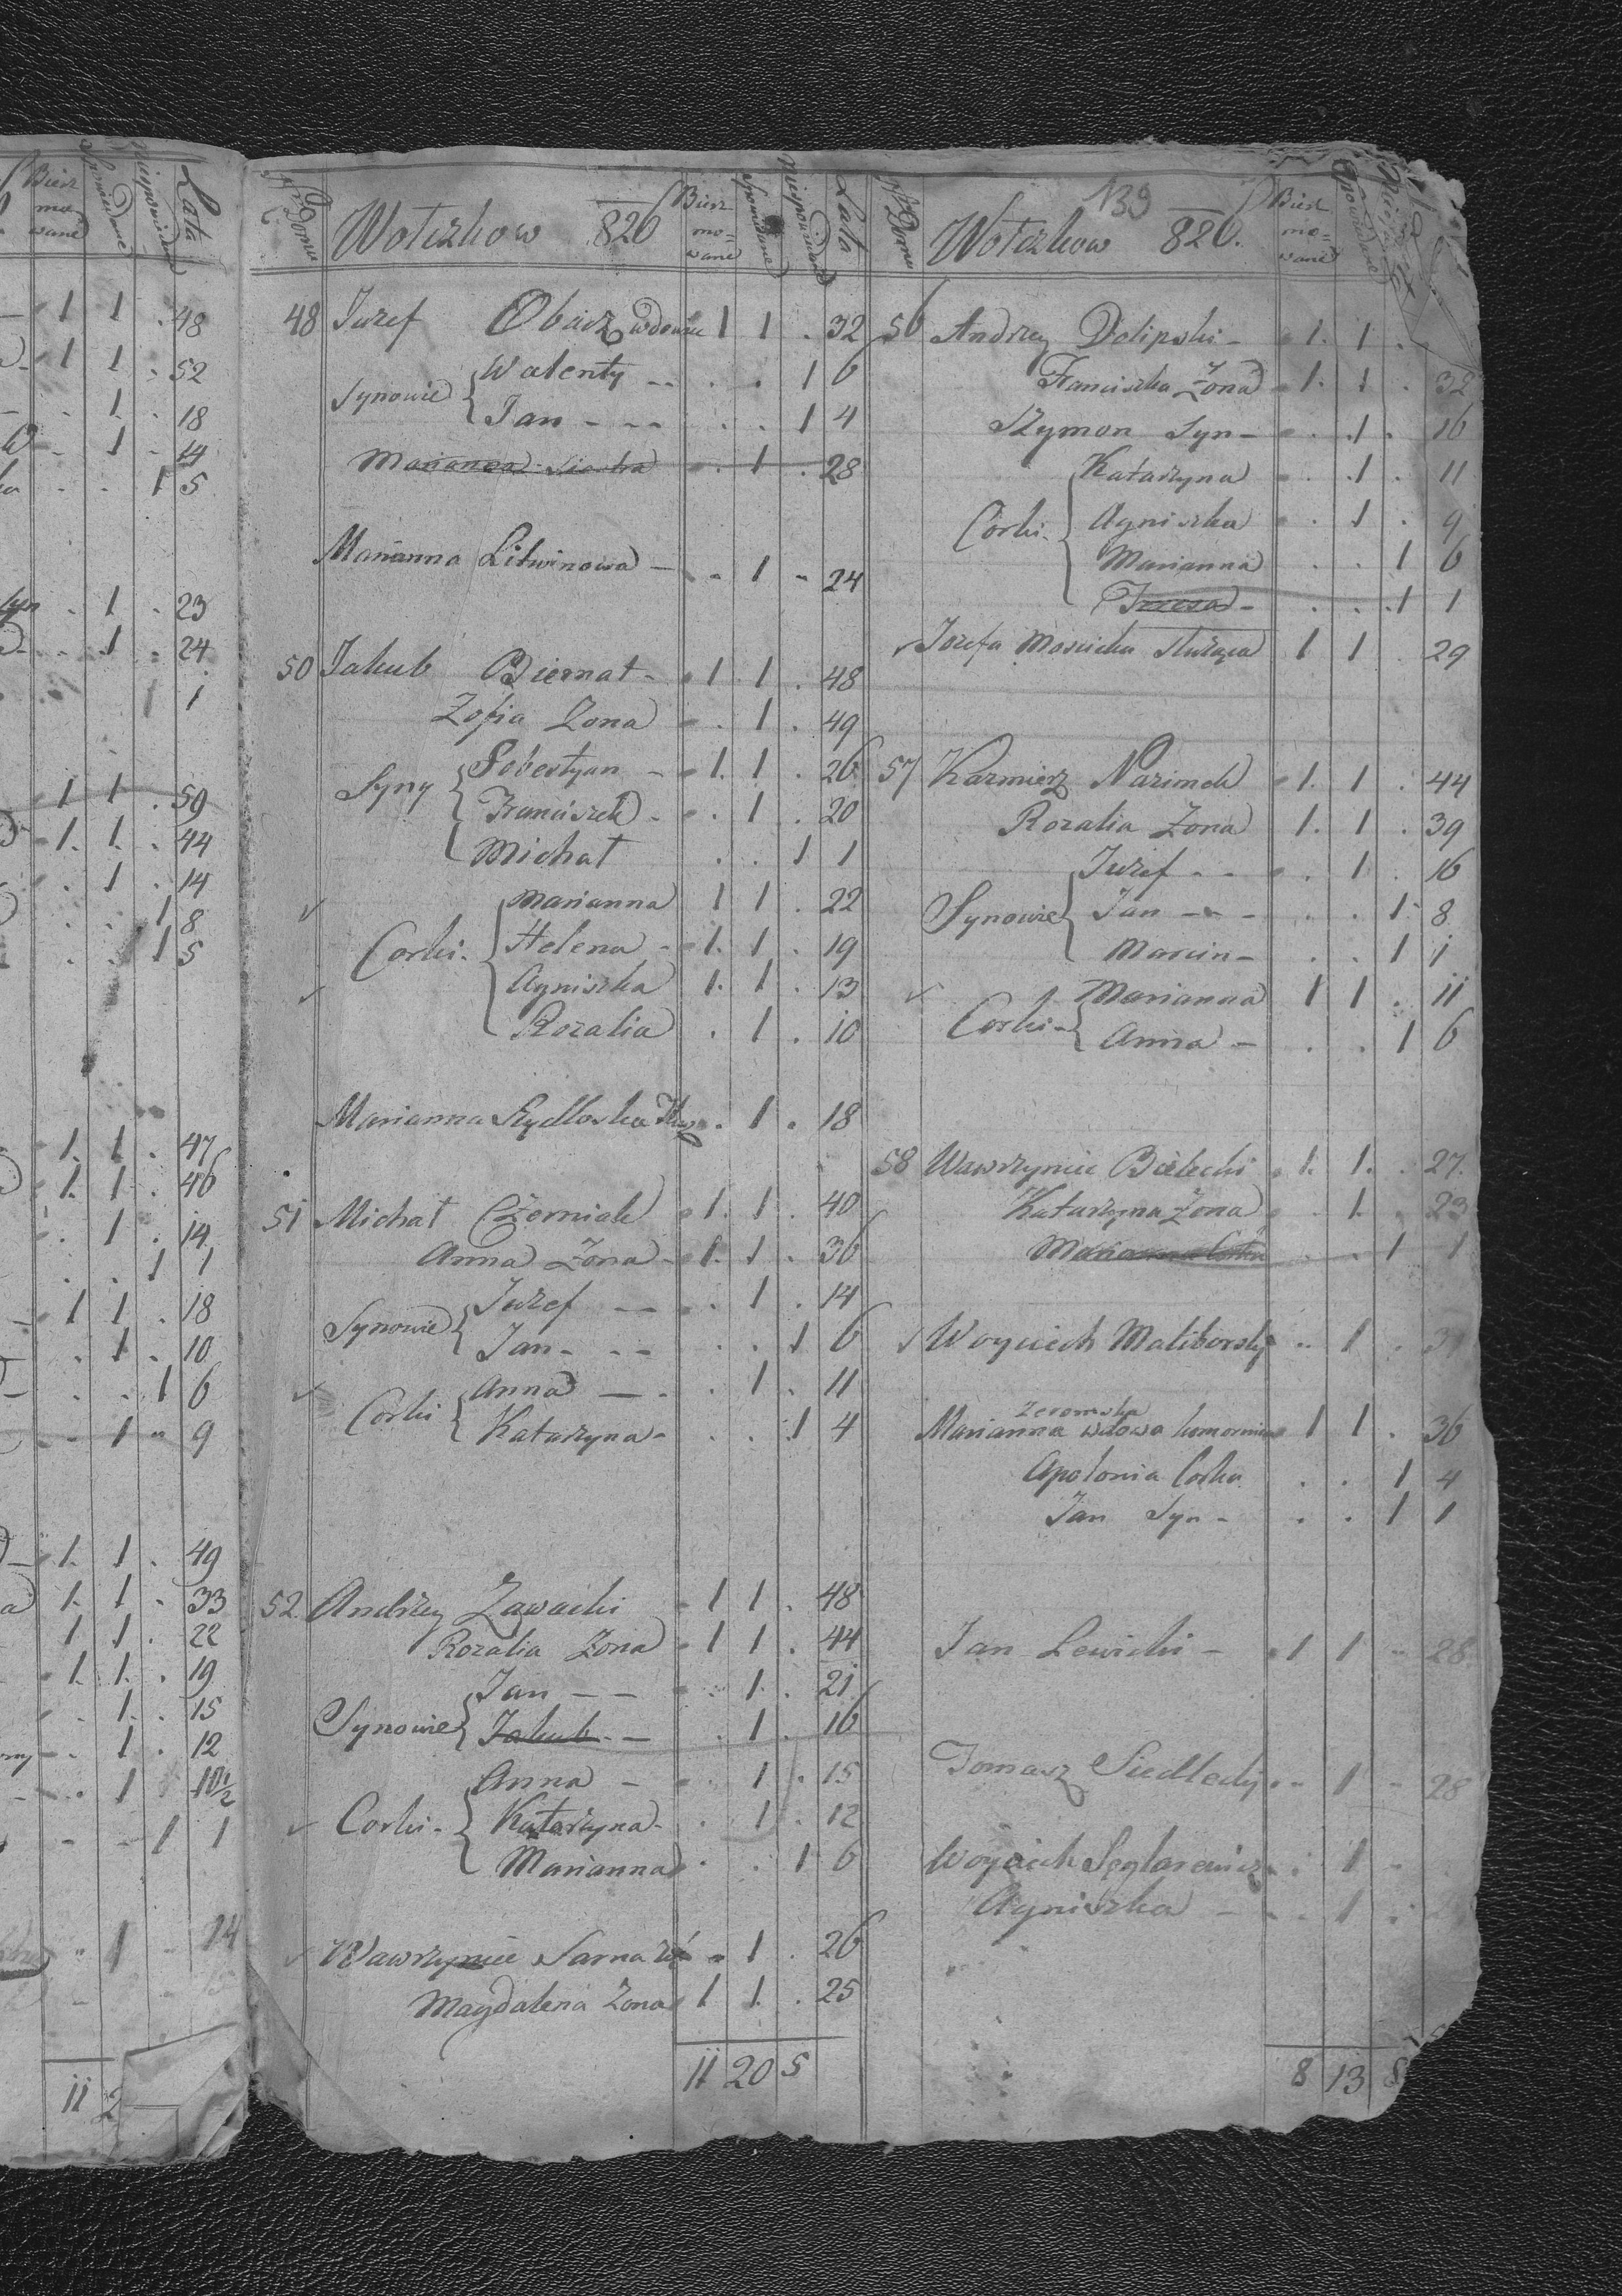 Bierz
mo
wane
Lata
1 1 . 48
1 1 . 52
. 1 . 18
. 1 . 14
. . 1 5
. 1 . 23
. 1 . 24
1 1
1 1 . 50
1. 1. . 44
. 1 . 14
. . 1 8
. . 1 5
1. 1. . 47
1. 1. . 46
. 1 . 14
. . 1 1
1 1 . 18
. 1 . 10
. . 1 6
- 1 " 9
1. 1 . 49
1. 1 . 33
1 1 . 22
1. 1. . 19
. 1. . 15
. 1 . 12
. 1 10 1/2
- - 1 1
" 1 - 14
11 2
Nr Domu
Wolczkow 826
Bierz
mo=
wane
Spowiadane
Niespowiadane
Lata
48 Juzef Obacz wdowiec 1 1 . 32
Synowie Walenty -- . . 1 6
Jan - -- . . 1 4
Marianna Siostra . 1 . 28
Marianna Litwinowa - . 1 - 24
50 Jakub Biernat - 1. 1 . 48
Zofia Zona . 1 . 49
Syny Sobestyan - 1. 1 . 26
Franciszek - . 1 . 20
Michał . . 1 1
Corki. Marianna 1 1 . 22
Helena - 1. 1 . 19
Agniszka 1. 1 . 13
Rozalia . 1 . 10
Marianna Szydloska Kuz . 1 . 18
51 Michał Czerniak 1. 1 . 40
Anna Zona - 1. 1 . 36
Synowie Juzef -- . 1 . 14
Jan - -- . . 1 6
Corki Anna -- . 1 . 11
Katarzyna - . . 1 4
52 Andrzey Zawacki 1 1 . 48
Rozalia Zona 1 1 . 44
Synowie Jan -- . 1. . 21
Jakub - - . 1 . 16
Corki - Anna - . 1 . 15
Katarzyna - . 1 . 12
Marianna . . 1 6
Wawrzyniec Sarna - 1 . 26
Magdalena Zona 1 1 . 25
11 20 5
Nr Domu
139
Wolczkow 826.
Bierz
mo=
wane
Spowiadane
56 Andrzey Dolipski - 1. 1 .
Franciszka Zona 1. 1 . 32
Szymon Syn - . 1 . 16
Corki. Katarzyna . 1 . 11
Agniszka . 1 . 9
Marianna . . 1 6
Tresa - . . 1 1
Jozefa Moscicka Służąca 1 1 . 29
57 Kazmierz Nazimek 1. 1 . 44
Rozalia Zona 1. 1 . 39
Synowie Juzef - - . 1 . 16
Jan - - - . . 1 8
Marcin - . . 1 1
Corki - Marianna 1 1 . 11
Anna - . . 1 6
58 Wawrzyniec Bielecki 1. 1. . 27
Katarzyna Zona . 1. . 23
Marianna Corka . . 1 1
Woyciech Maliborski .. 1 .
Zeromska
Marianna wdowa komornica 1 1 . 36
Apolonia Corka . . 1 4
Jan Syn - . . 1 1
Jan Lewicki - 1 1 - 28
Tomasz Siedlecki - 1 - 28
Woyciech . 1 -
Agniszka - - 1 .
8 13 8